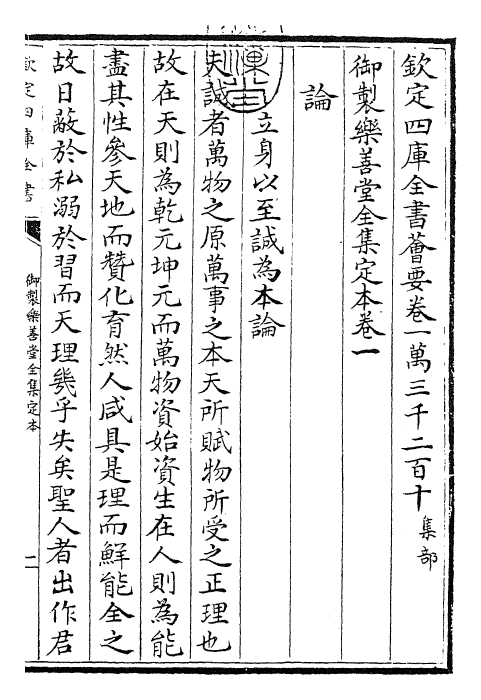 欽定四庫全書薈要卷一萬三千二百十 集部
御製樂善堂全集定本卷一
論
立身以至誠為本論
夫誠者萬物之原萬事之本天所賦物所受之正理也
故在天則為乾元坤元而萬物資始資生在人則為能
盡其性參天地而贊化育然人咸具是理而鮮能全之
故日蔽於私溺於習而天理幾乎失矣聖人者出作君
欽定四庫全書
御製樂善堂全集定本